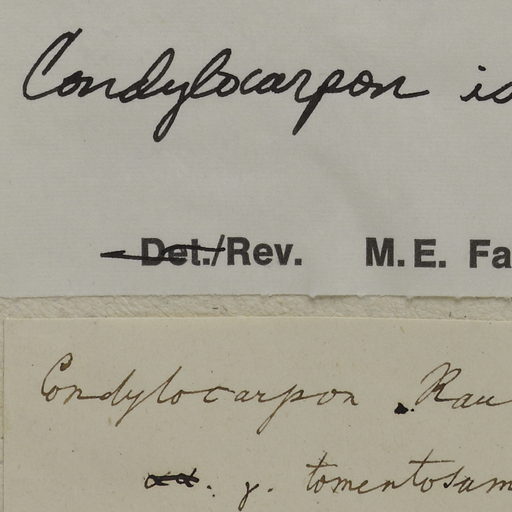 Condylocarpon is
Det./Rev. M.E. Fa
Condylocarpon . Rau
γ. tomentosum